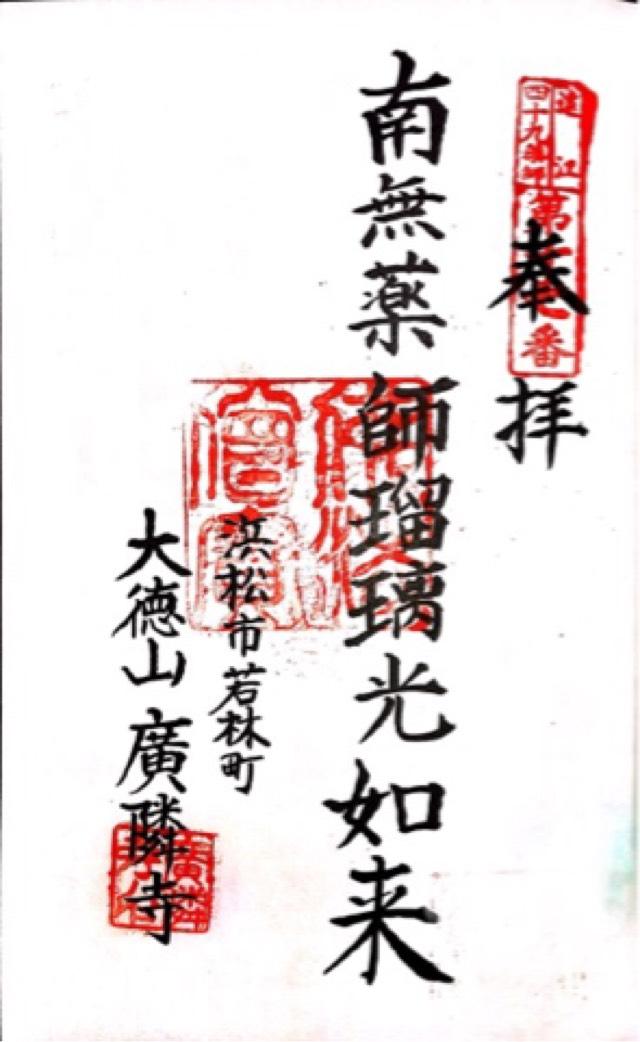 遠江
四十九薬師
第
番
奉拝
南無薬師瑠璃光如来
佛法僧寳
浜松市若林町
大徳山廣隣寺